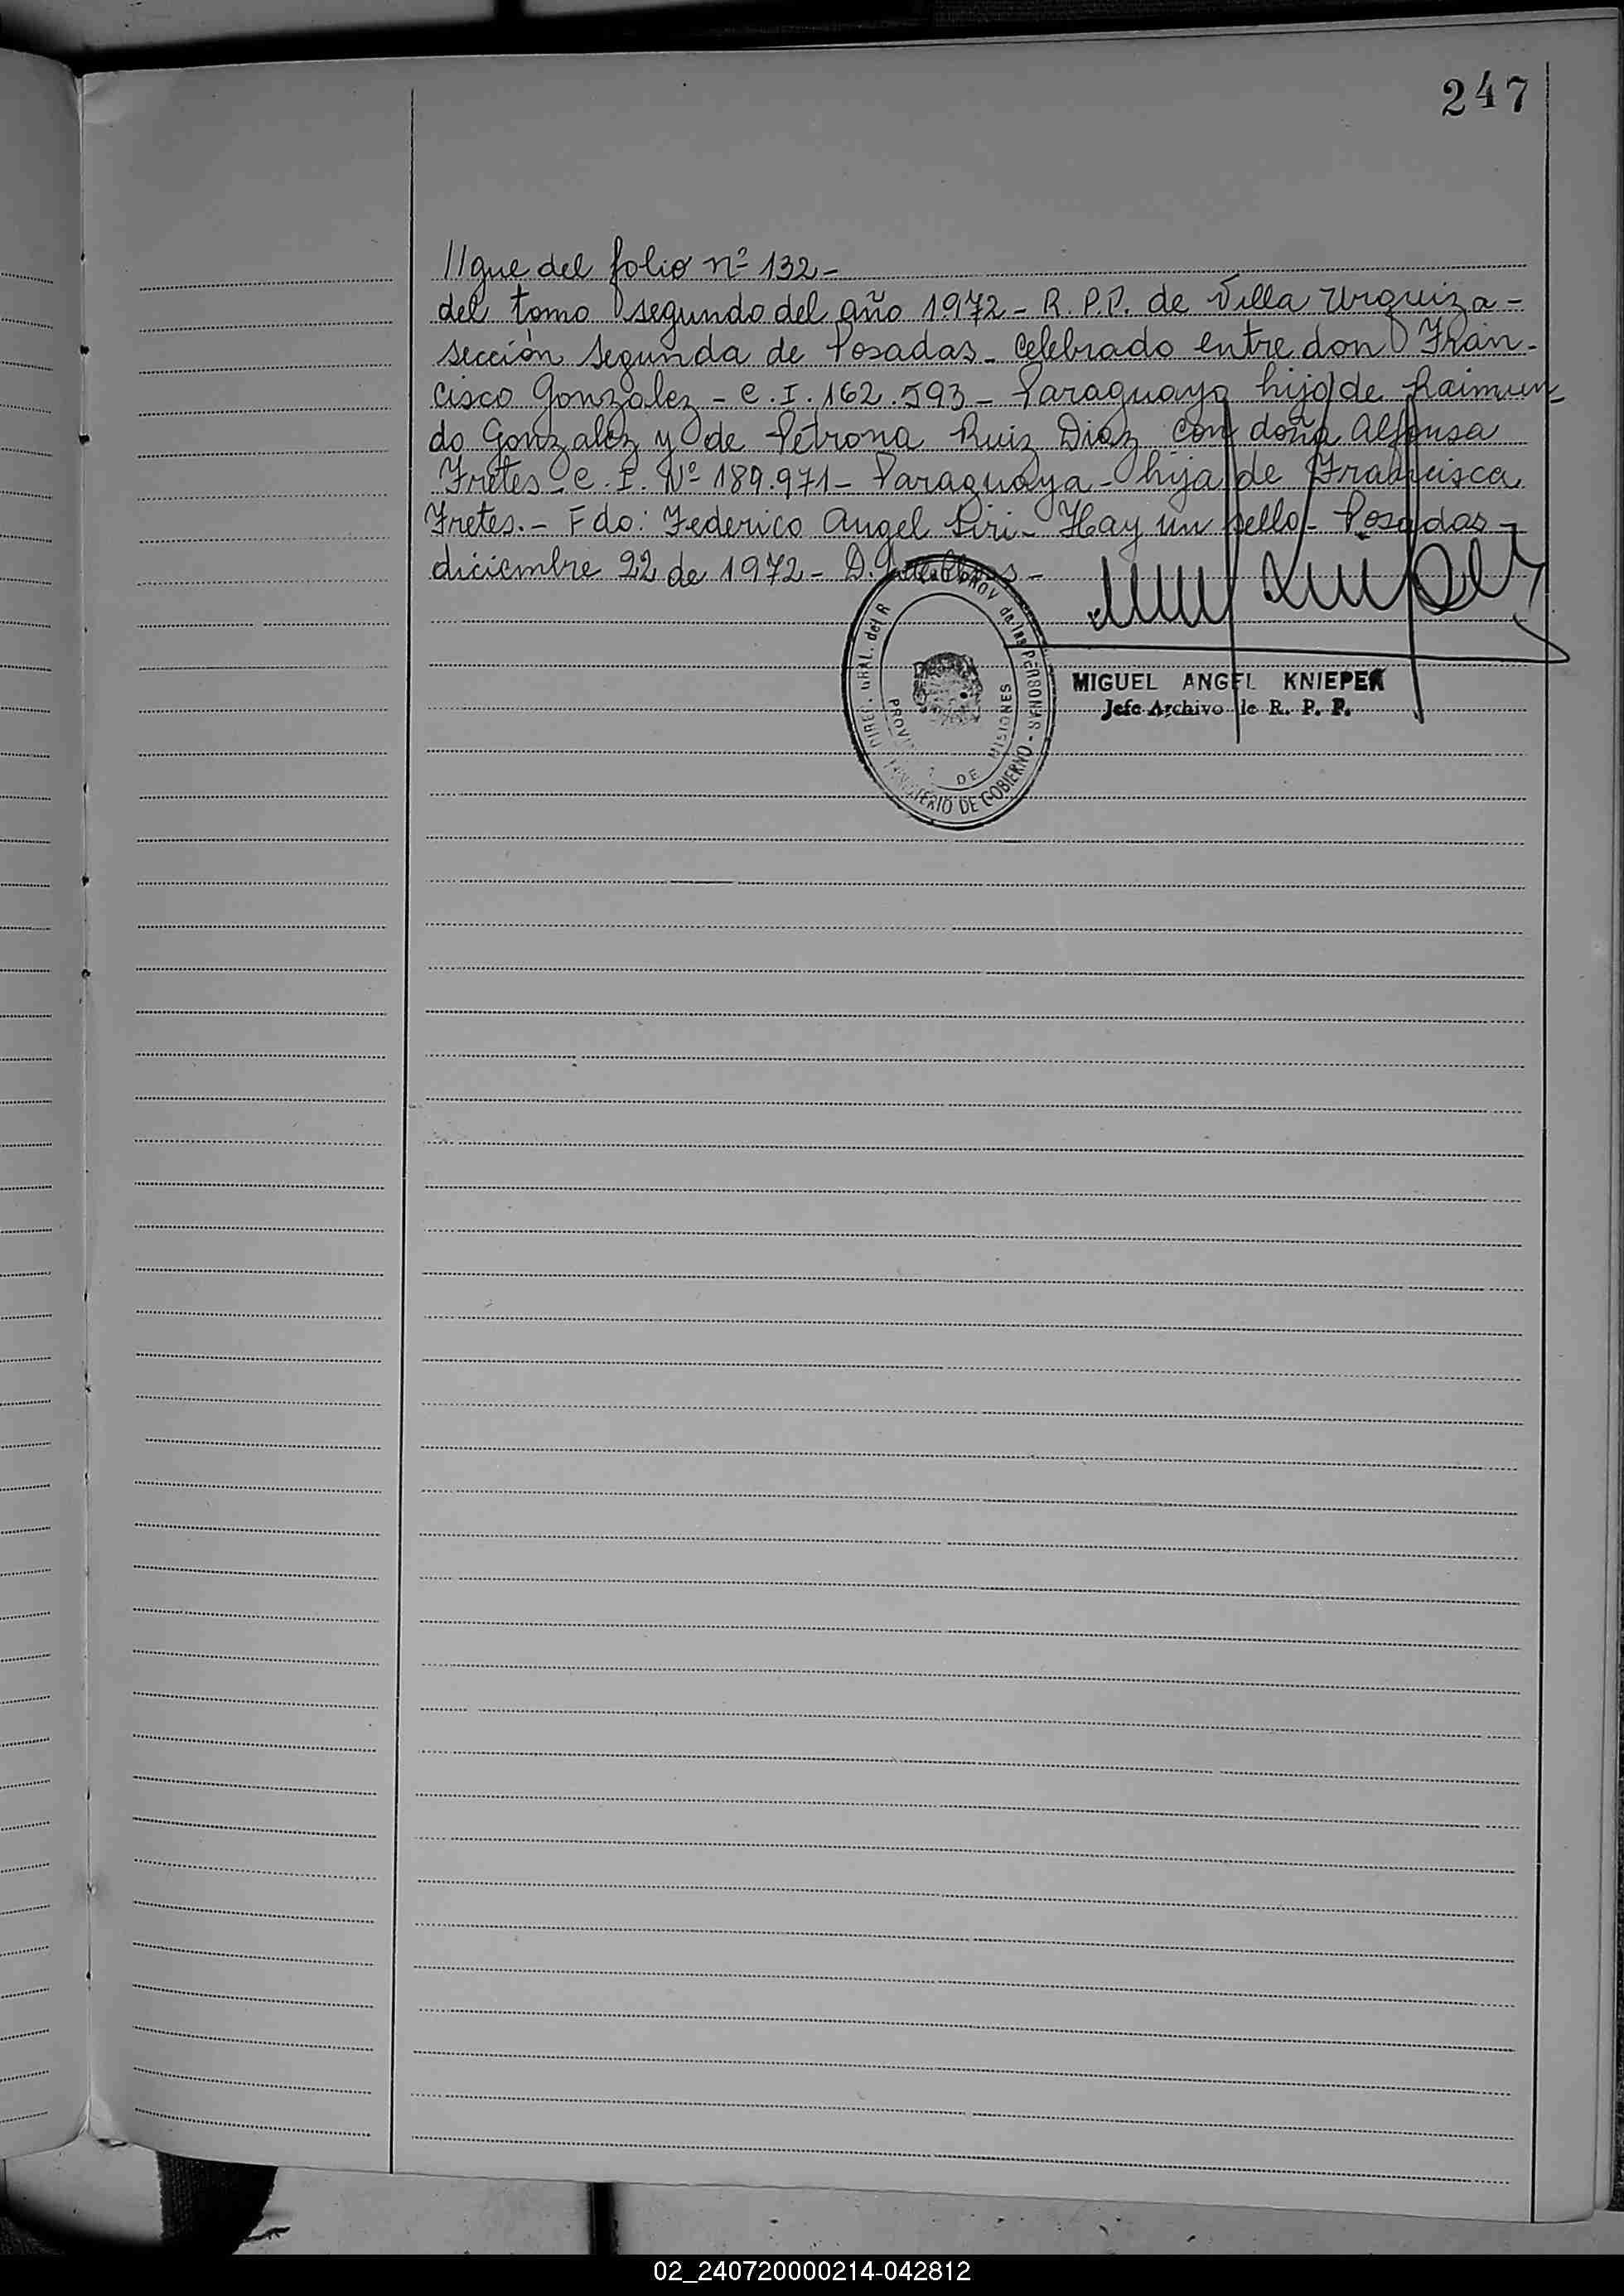 247
//gue del folio nº 132-
del tomo segundo del año 1972 - R.P.P. de Villa Urquiza -
sección segunda de Posadas - celebrado entre don Fran-
cisco Gonzalez - C.I. 162.593 - Paraguayo hijo de Raimun-
do Gonzalez y de Petrona Ruiz Diaz con doña Alfonsa
Fretes - C.I. Nº 189.971 - Paraguaya - hija de Francisca
Fretes. - Fdo: Federico Angel Siri - Hay un sello - Posadas -
diciembre 22 de 1972 -
DIREC. GRAL. del R PROV de las PERSONAS - MINISTERIO DE GOBIERNO
DE MISIONES
MIGUEL ANGEL KNIEPER
Jefe Archivo de R. P. P.
02_240720000214-042812